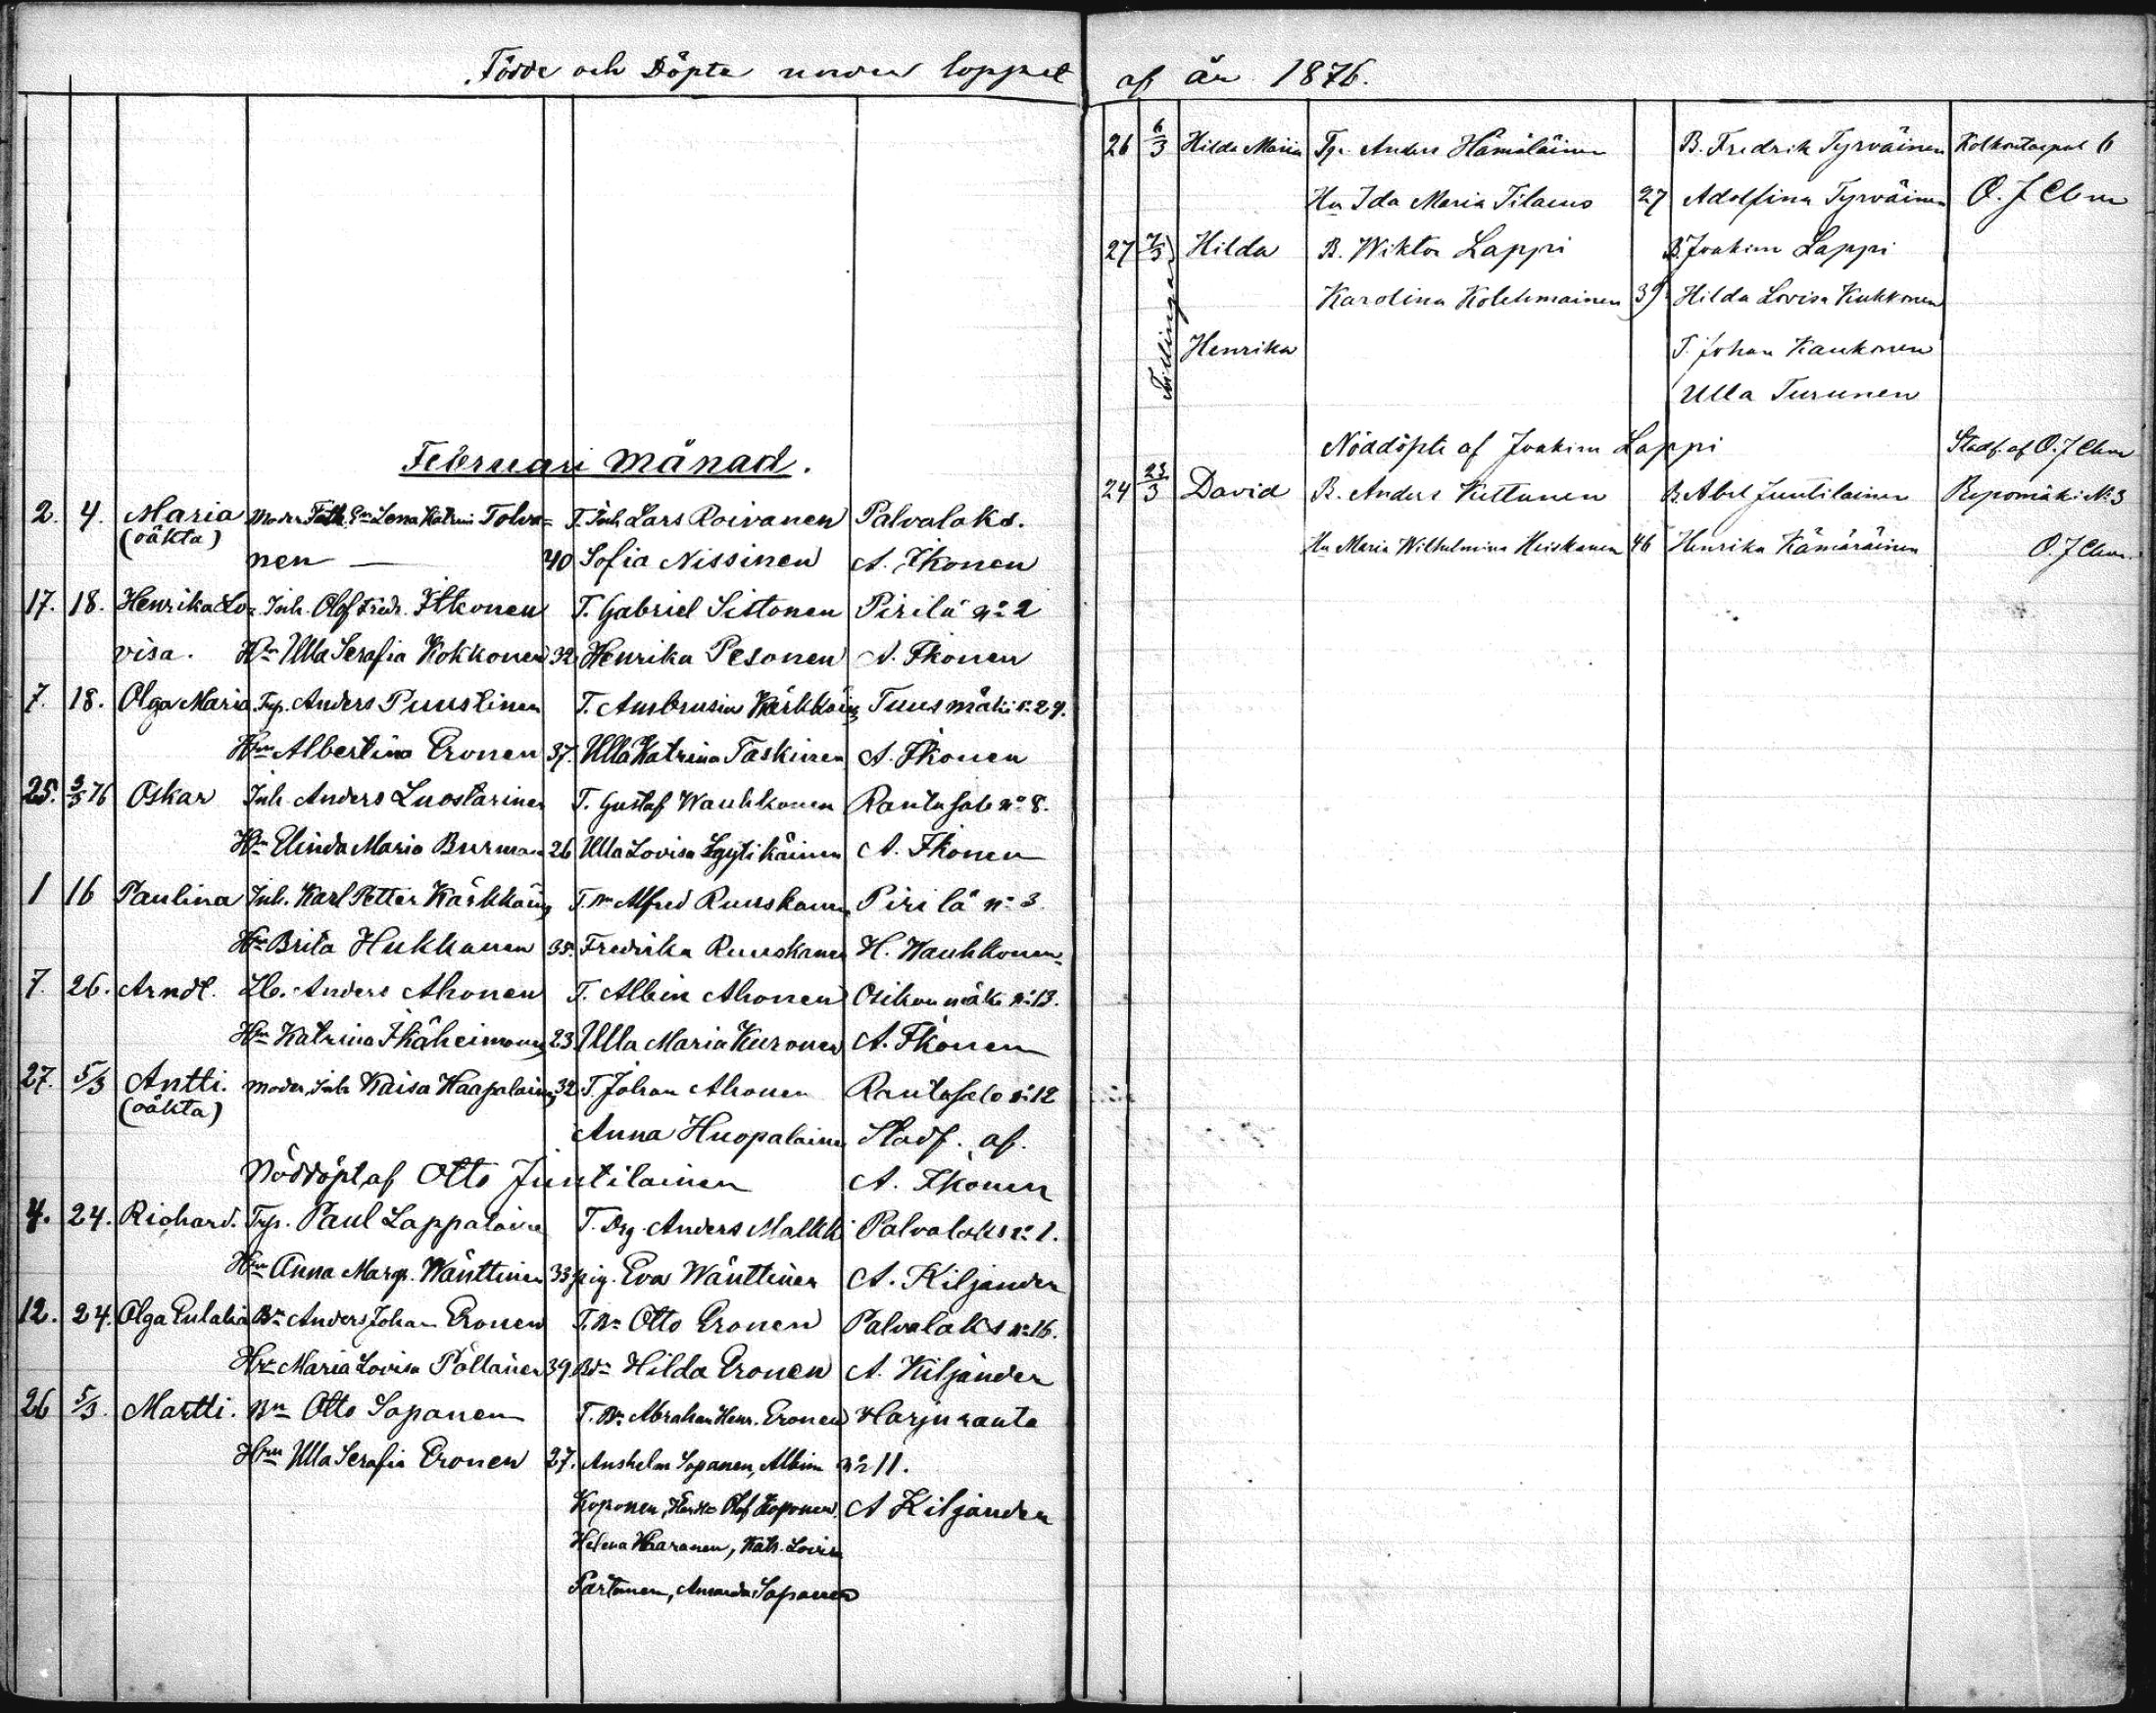 Födde och Döpte under loppet af år 1876.
Februari Månad.
2. 4. Maria Moder Tolva= T. Inh. Lars Roivanen Palvalaks.
(oäkta) nen — 40 Sofia Nissinen A. Ikonen
17. 18. Henrika Lo= Inh. Olof Fredr. Itkonen T. Gabriel Sistonen Pirilä No 2
visa. Hru Ulla Serafia Kokkonen 32 Henrika Pesonen A. Ikonen
7. 18. Olga Maria Trp. Anders Puustinen T. Ambrusius Kärkkäin Tuusmäki No 29.
Hru Albertina Eronen 37. Ulla Katrina Taskinen A. Ikonen
25. 3/3 76 Oskar Inh. Anders Luostarinen T. Gustaf Wauhkonen Rantasalo No 8.
Hru Elinda Maria Burman 26 Ulla Lovisa Lyytikäinen A. Ikonen
1 16 Paulina Inh. Karl Petter Kärkkäin T. Bn Alfred Ruuskanen Pirilä No 3
Hru Brita Hukkanen 35. Fredrika Ruuskanen H. Wauhkonen
7. 26. Arndt. Lb. Anders Ahonen T. Albin Ahonen Osikonmäki No 13.
Hru Katrina Ikäheimonen 23 Ulla Maria Kuronen A. Ikonen
27. 5/3 Antti. Moder Inh. Kaisa Haapalainen 32 T. Johan Ahonen Rantasalo No 12
(oäkta) Anna Huopalainen Stadf. af.
Nöddöpt af Otto Juntilainen A. Ikonen
4. 24. Richard. Trp. Paul Lappalainen T. Drg. Anders Malkki Palvalaks No 1.
Hru Anna Margr. Wänttinen 33 pig. Eva Wänttinen A. Kiljander
12. 24. Olga Eulalia Bn Anders Johan Eronen T. Bn Otto Eronen Palvalaks No 16.
Hru Maria Lovisa Pöllänen 39 Bdr Hilda Eronen A. Kiljander
26 5/3. Martti. Bn Otto Sapanen T. Bn Abraham Henr. Eronen Harjuranta
Hru Ulla Serafia Eronen 27. Anshelm Sopanen, Albin No 11.
Koponen, Olof Koponen A Kiljander
Helena Kaaranen, Katr. Lovisa
Partanen, Amanda Sapanen
26 6/3 Hilda Maria Tp. Anders Hämäläinen B. Fredrik Tyrväinen Kolkontaipal 6
Hu Ida Maria Tilaeus 27 Adolfina Tyrväinen O. J. Clever
27 7/3 Hilda B. Wiktor Lappi B. Joakim Lappi
Karolina Kolehmainen 39 Hilda Lovisa Kukkonen
Tvillingar Henrika T. Johan Kaukonen
Ulla Turunen
Nöddöpte af Joakim Lappi Stadf. af O. J Clever
24 23/3 David B. Anders Kettunen B. Abel Juntilainen Repomäki No 3
Hu Maria Wilhelmina Heiskanen 46 Henrika Kämäräinen O. J Clever